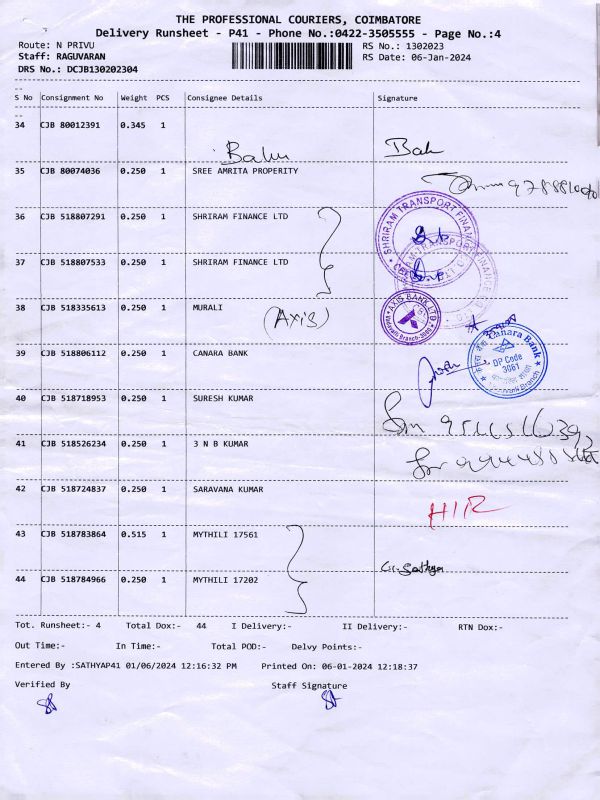 THE PROFESSIONAL COURIERS, COIMBATORE
Delivery Runsheet - P41 - Phone No.:0422-3505555 - Page No.:4
Route: N PRIVU RS No.: 1302023
Staff: RAGUVARAN RS Date: 06-Jan-2024
DRS No.: DCJB130202304
S No Consignment No Weight PCS Consignee Details Signature
34 CJB 80012391 0.345 1
Balu
35 CJB 80074036 0.250 1 SREE AMRITA PROPERITY
36 CJB 518807291 0.250 1 SHRIRAM FINANCE LTD
SHRIRAM TRANSPORT FINANCE
37 CJB 518807533 0.250 1 SHRIRAM FINANCE LTD
38 CJB 518335613 0.250 1 MURALI
(Axis)
AXIS BANK LTD
39 CJB 518806112 0.250 1 CANARA BANK
Canara Bank
DP Code
3061
Branch
40 CJB 518718953 0.250 1 SURESH KUMAR
41 CJB 518526234 0.250 1 3 N B KUMAR
42 CJB 518724837 0.250 1 SARAVANA KUMAR
43 CJB 518783864 0.515 1 MYTHILI 17561
Sathya
44 CJB 518784966 0.250 1 MYTHILI 17202
Tot. Runsheet:- 4 Total Dox:- 44 I Delivery:- II Delivery:- RTN Dox:-
Out Time:- In Time:- Total POD:- Delvy Points:-
Entered By :SATHYAP41 01/06/2024 12:16:32 PM Printed On: 06-01-2024 12:18:37
Verified By Staff Signature